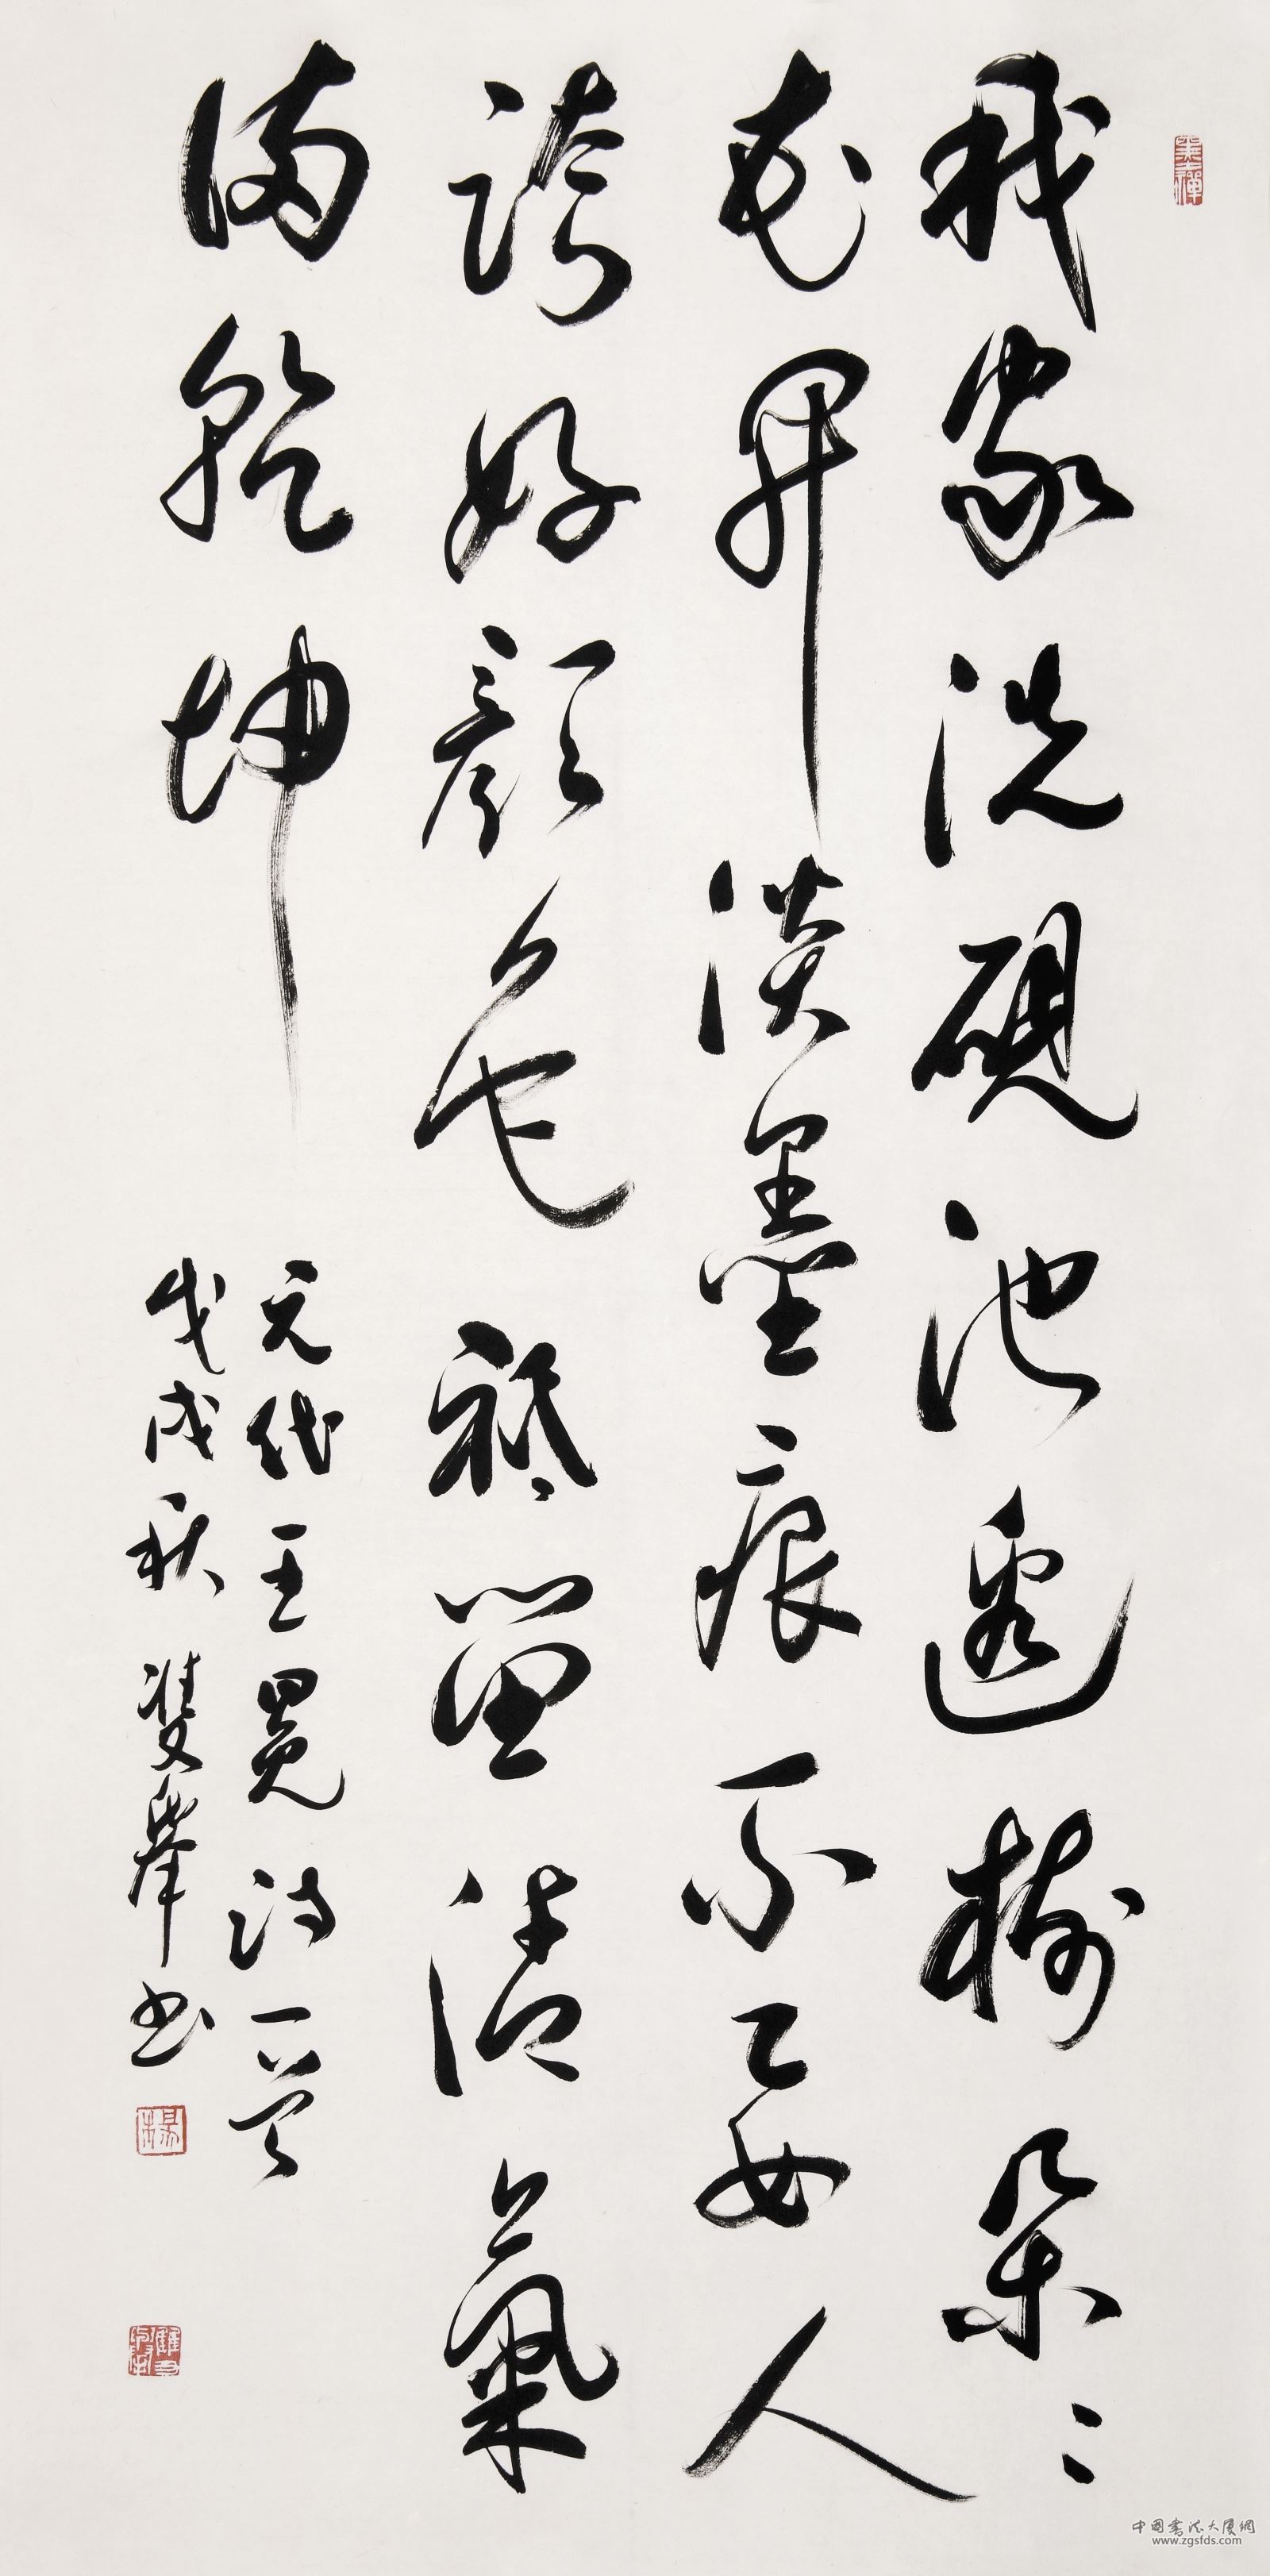 我家洗砚池边树朵〻
花开淡墨痕不要人
誇好颜色祗留清氣
满乾坤
元代王冕诗一首
戊戌秋雙舉书
楊
中国书法大厦网
www.zgsfds.com